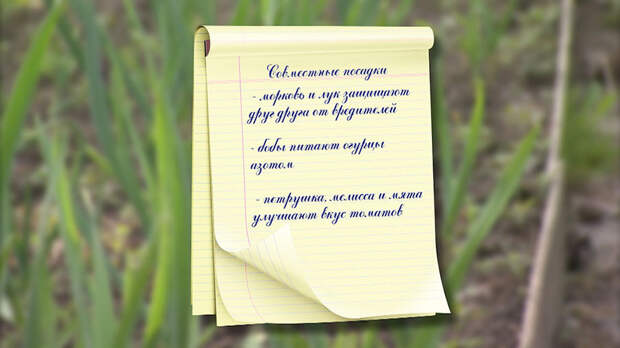 Совместные посадки
- морковь и лук защищают
друг друга от вредителей
- бобы питают огурцы
азотом
- петрушка, мелисса и мята
улучшают вкус томатов